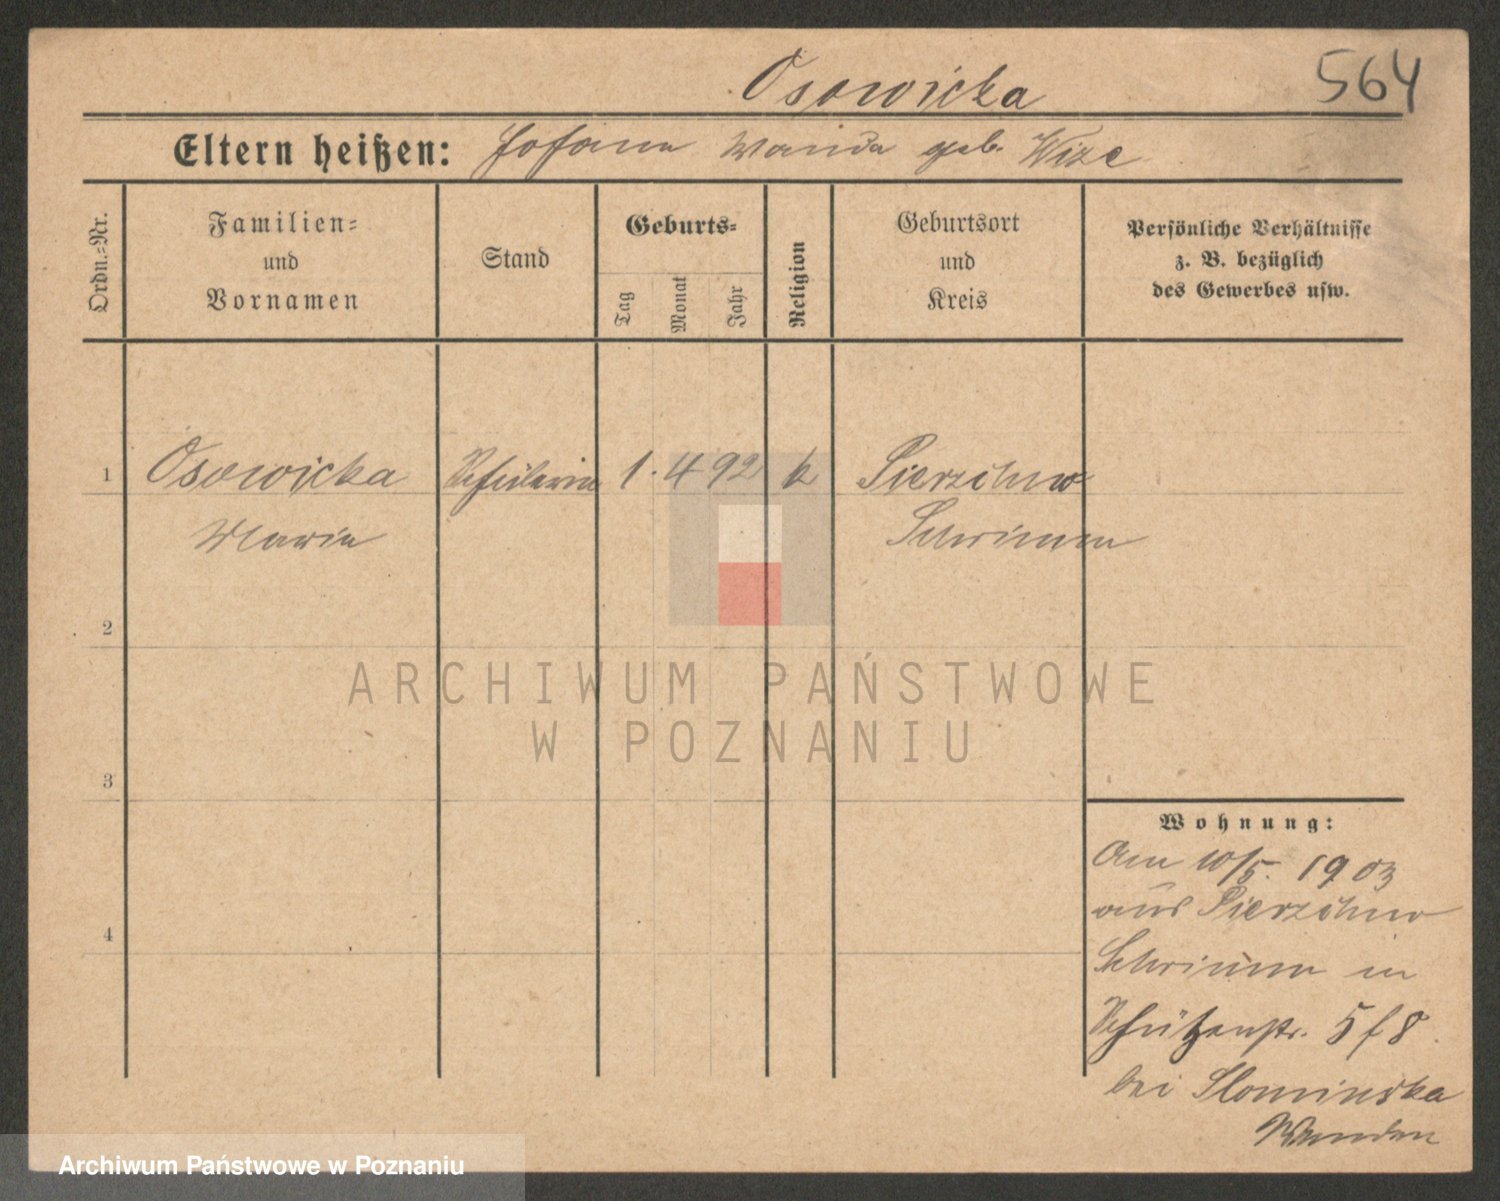 Osowicka
564
Eltern heißen: Johann Wanda geb. Wize
Ordn.=Nr.
Familien=
und
Vornamen
Stand
Geburts=
Tag
Monat
Jahr
Religion
Geburtsort
und
Kreis
Persönliche Verhältnisse
z. B. bezüglich
des Gewerbes usw.
1 Osowicka Schülerin 1. 4 92 k Pierzchno
Maria Schrimm
2
ARCHIWUM PAŃSTWOWE
W POZNANIU
3
Wohnung:
Am 10/5. 1903
aus Pierzchno
4
Schrimm in
Schützenstr. 5 f 8.
bei Slominska
Archiwum Państwowe w Poznaniu